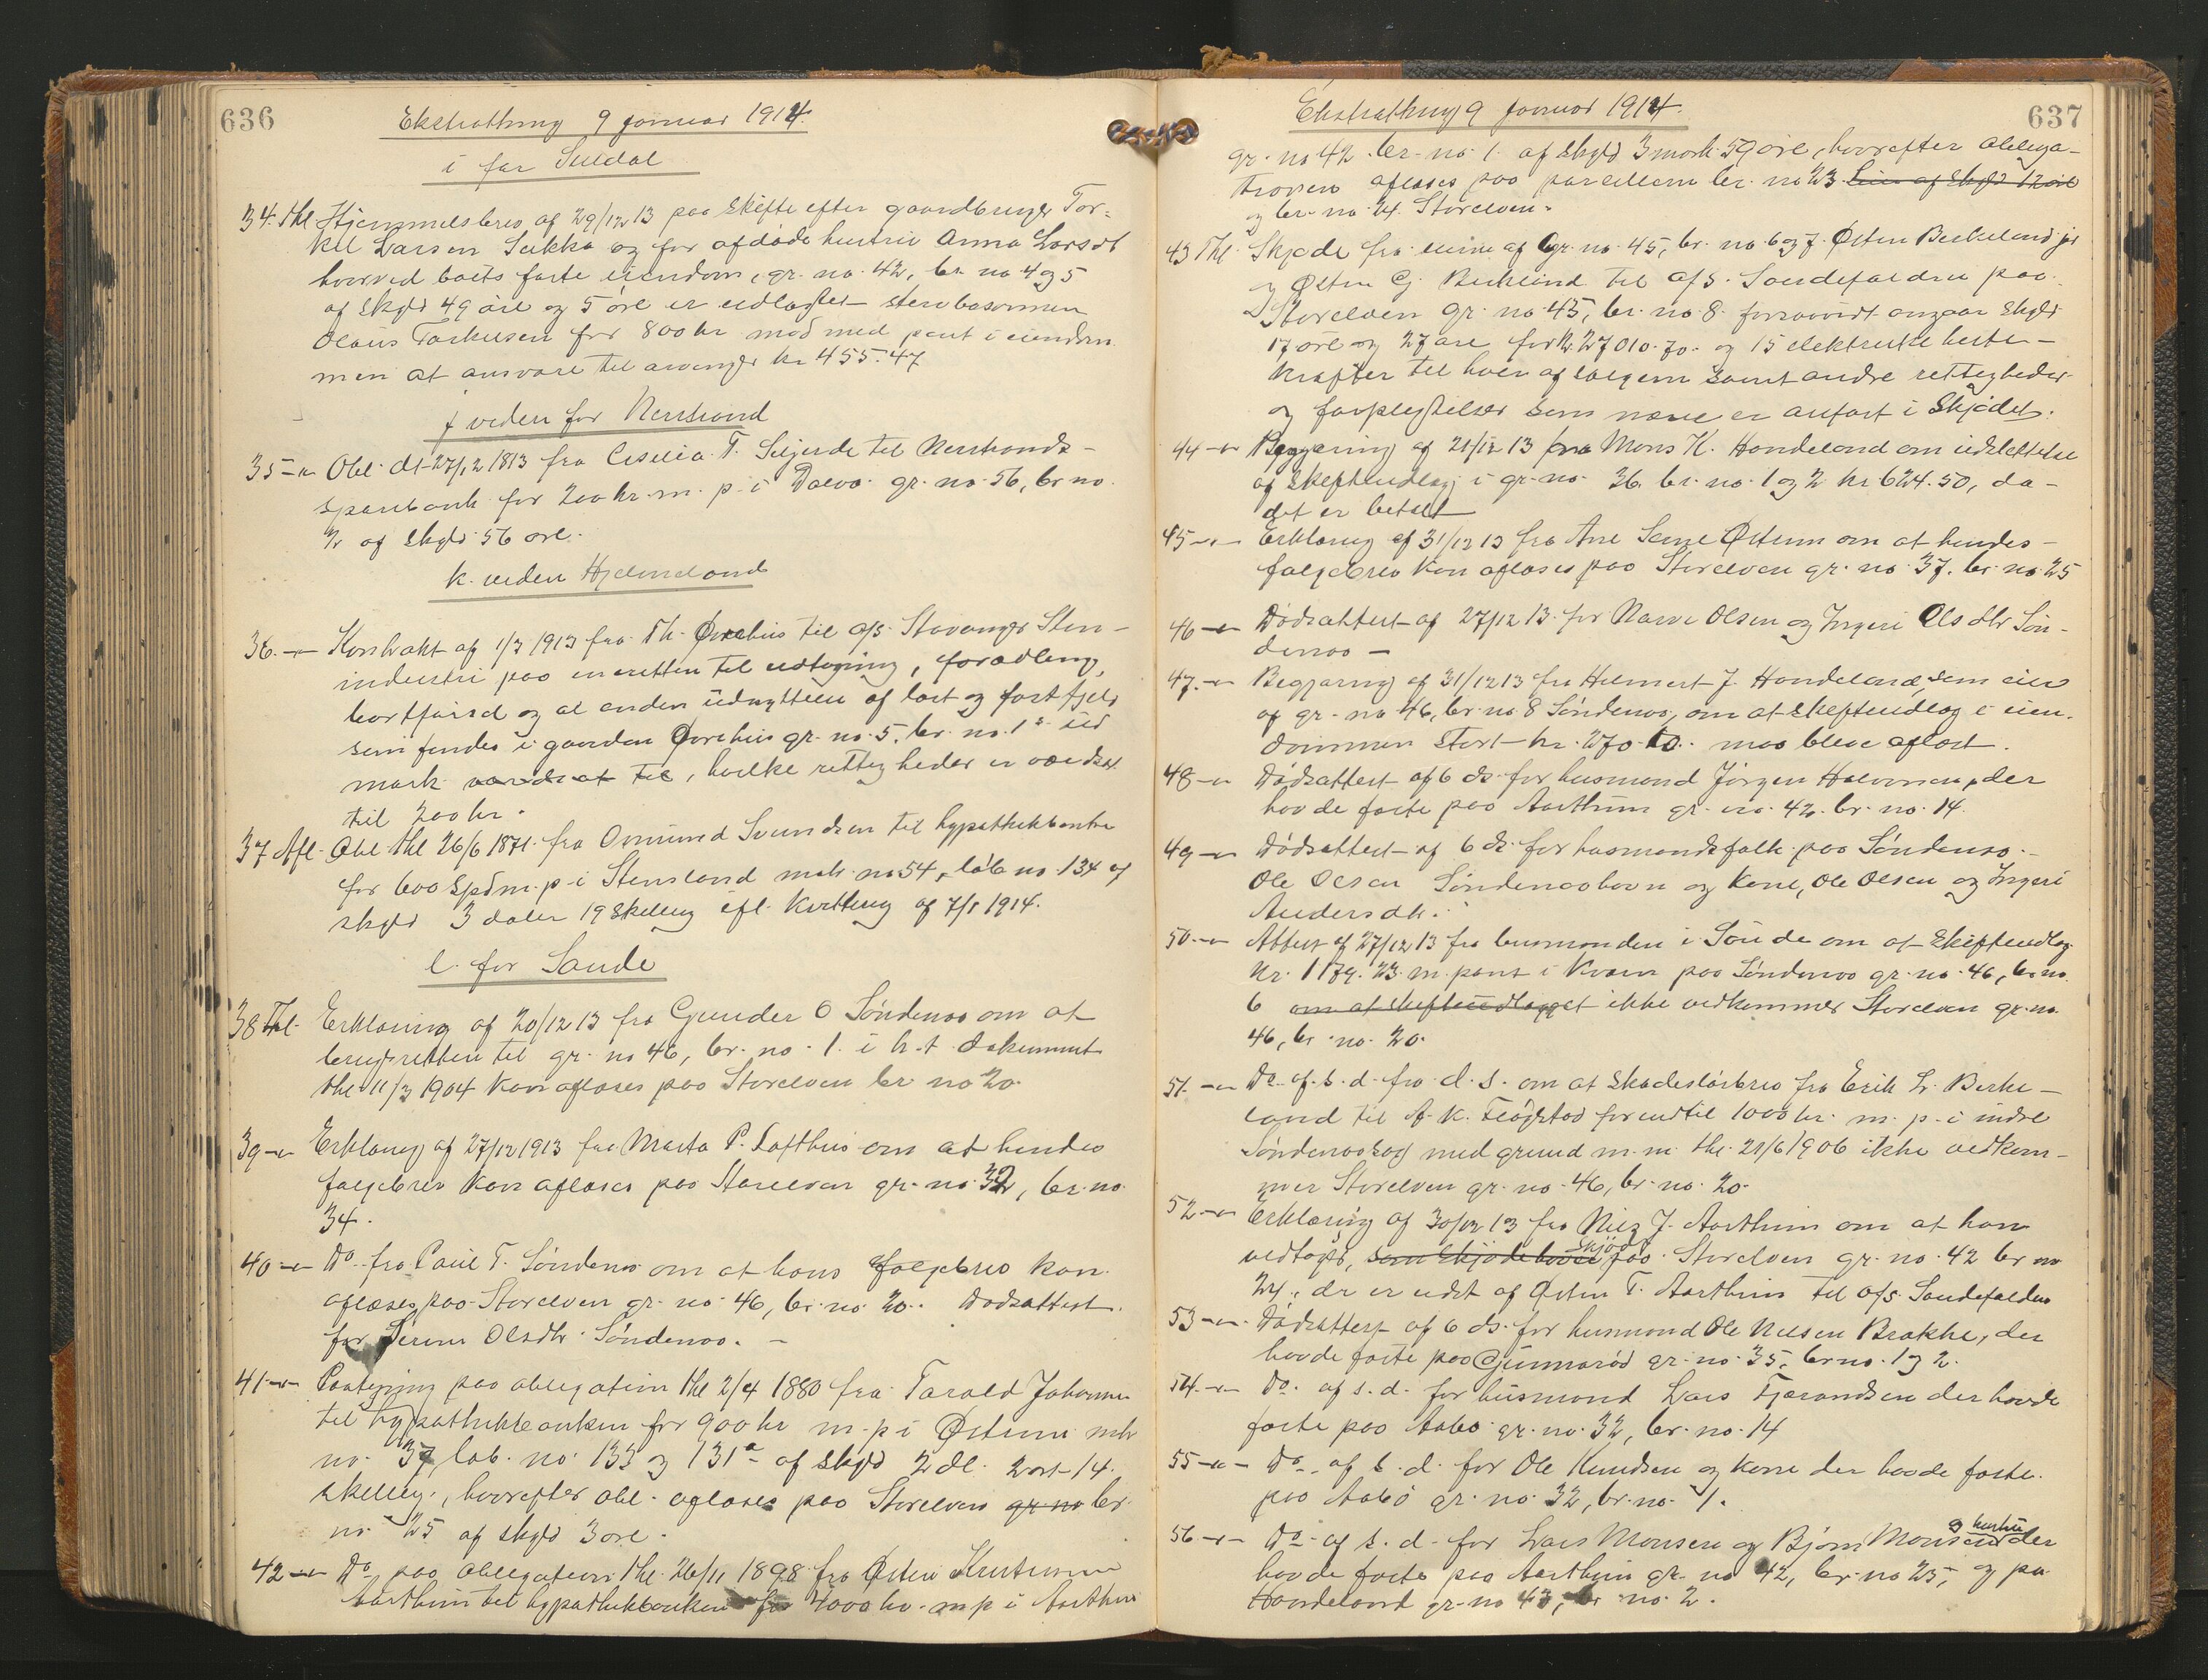 636
Ekstrathing 9 januar 1914.
i for Suldal
34. thl. Hjemmelsbrev af 29/12 13 paa skifte efter gaardbruger Tor-
kel Larsen Sukka og for afdøde hustru Anna Larsdt
hvorved boets faste eiendom, gr. no. 42, br. no 4 og 5
af skyld 49 øre og 5 øre er udlagt stervbosønnen
Olaus Torkelsen for 800 kr mod med pant i eiendom
men at ansvare til arvinger kr 455.47
j. viden for Nerstrand
35 -"- Obl. dt 27/12 1813 fra Cecilia T. til Nerstrands-
sparebank for 200 kr. m. p. i gr. no. 56, br no.
af skyld 56 øre.
k. viden Hjelmeland
36. -"- Kontrakt af 1/3 1913 fra Th. Øvrehus til a/s. Stavanger Sten-
industri paa eneretten til udtagning, forædling,
bortførsel og al anden udnyttelse af løst og fast fjeld
som findes i gaarden Øvrehus gr. no. 5. br. no. 1 s ud
mark værdsat til, hvilke rettigheder er værdsat
til 200 kr.
37 Afl. Obl. thl 26/6 1871 fra Svendsen til hypothekbanken
for 600 Spd m. p. i Stensland matr. no 54, løb no. 134 af
skyld 3 daler 19 skilling ifl. kvittering af 7/1 1914.
l. for Sande
38 Thl. Erklæring af 20/12 13 fra Gunder O Søndenaa om at
brugsretten til gr. no 46, br. no. 1. i h. t. dokument
thl 11/3 1904 kan afløses paa Storelven br no 20.
39 -"- Erklæring af 27/12 1913 fra Marta P. Lofthus om at hendes
følgebrev kan afløses paa Storelven gr. no. 32, br. no.
34.
40 -"- Do. fra Paul T. Søndenaa om at hans følgebrev kan
aflæses paa Storelven gr. no 46, br. no. 20. Dødsattest
for Serine Olsdtr. Søndenaa. -
41 -"- Paategning paa obligation thl 2/4 1880 fra Tarald Johannes
til hypothekbanken for 900 kr m. p. i Østeim mtr
no. 37, løb. no. 133 og 131a af skyld 2 dl. 2 ort 14.
skilling, hvorefter obl. afløses paa Storelven gr no br.
no. 25 af skyld 3 øre.
42 -"- Do paa obligation thl. 26/11 1898 fra Østen
Aarthun til hypothekbanken for 4000 kr. m p i Aarthun
637
Ekstrathing 9 januar 1914.
gr. no 42 br. no. 1. af skyld 3 mark 59 øre, hvorefter obliga-
tionen afløses paa parcellerne br. no 23 af skyld 12 øre
og br. no 24. Storelven.
43 Thl. Skjøde fra eierne af gr. no. 45, br. no 6 og 7. Østen Birkeland jr
og Østen G. Birkeland til a/s. Sandefaldene paa
Storelven gr. no 45, br. no 8 forsaavidt angaar skyld
17 øre og 27 øre for kr. 27010.70 og 15 elektriske heste-
kræfter til hver af sælgerne samt andre rettigheder
og forpligtelser som nævnt er anført i skjødet.
44 -"- Begjæring af 21/12 13 fra Mons K. Handeland om udslettelse
af skifteudlæg i gr. no. 36. br. no. 1 og 2 kr 624.50, da
det er betalt
45 -"- Erklæring af 31/12 13 fra Ane Serine Østeim om at hendes
følgebrev kan afløses paa Storelven gr. no 37. br. no 25
46 -"- Dødsattest af 27/12 13 for Olsen og Ingeri Olsdtr Søn-
denaa -
47. -"- Begjæring af 31/12 13 fra J. Handeland, som eier
af gr. no 46, br. no 8 Søndenaa, om at skifteudlæg i eien-
dommen stort kr. 270. maa blive afløst.
48 -"- Dødsattest af 6 ds. for husmand Jørgen Halvorsen, der
havde fæste paa Aarthun gr. no. 42. br. no. 14.
49 -"- Dødsattest af 6 ds. for husmandsfolk paa Søndenaa.
Ole Olsen Søndenaa og kone, Ole Olsen og Ingeri
Andersdtr.
50. -"- Attest af 27/12 13 fra lensmanden i Sande om at skifteudlæg
kr. 1179.23 m. pant i kvern paa Søndenaa gr. no. 46, br. no.
6 om at skifteudlægget ikke vedkommer Storelven gr. no.
46, br. no. 20.
51. -"- Do. af s. d. fra d. s. om at skadesløsbrev fra Erik L. Birke-
land til A. K. Fløgstad for indtil 1000 kr. m. p. i indre
Søndenaa sag med grund m. m. thl. 21/6 1906 ikke vedkom-
mer Storelven gr. no. 46, br. no. 20.
52 -"- Erklæring af 30/12 13 fra J. Aarthun om at han
vedtager, som skjødehaver skjøde paa Storelven gr. no. 42 br no
24, der er udst af Østen T. Aarthun til a/s. Sandefaldene
53 -"- Dødsattest af 6 ds. for husmand Ole Nilsen Brakke, der
havde fæste paa Gunnarød gr. no. 35, br no. 1 og 2.
54. -"- Do. af s. d. for husmand Lars Tjerandsen der havde
fæste paa Aabø gr. no. 32, br. no. 14
55 -"- Do. af s. d. for Ole Knudsen og kone der havde fæste
paa Aabø gr. no. 32, br. no. 1.
56 -"- Do. af s. d. for Lars Monsen og Bjørn Monsen og hustru der
havde fæste paa Aarthun gr. no 42, br. no 25, og paa
Handeland gr. no 43, br no. 2.